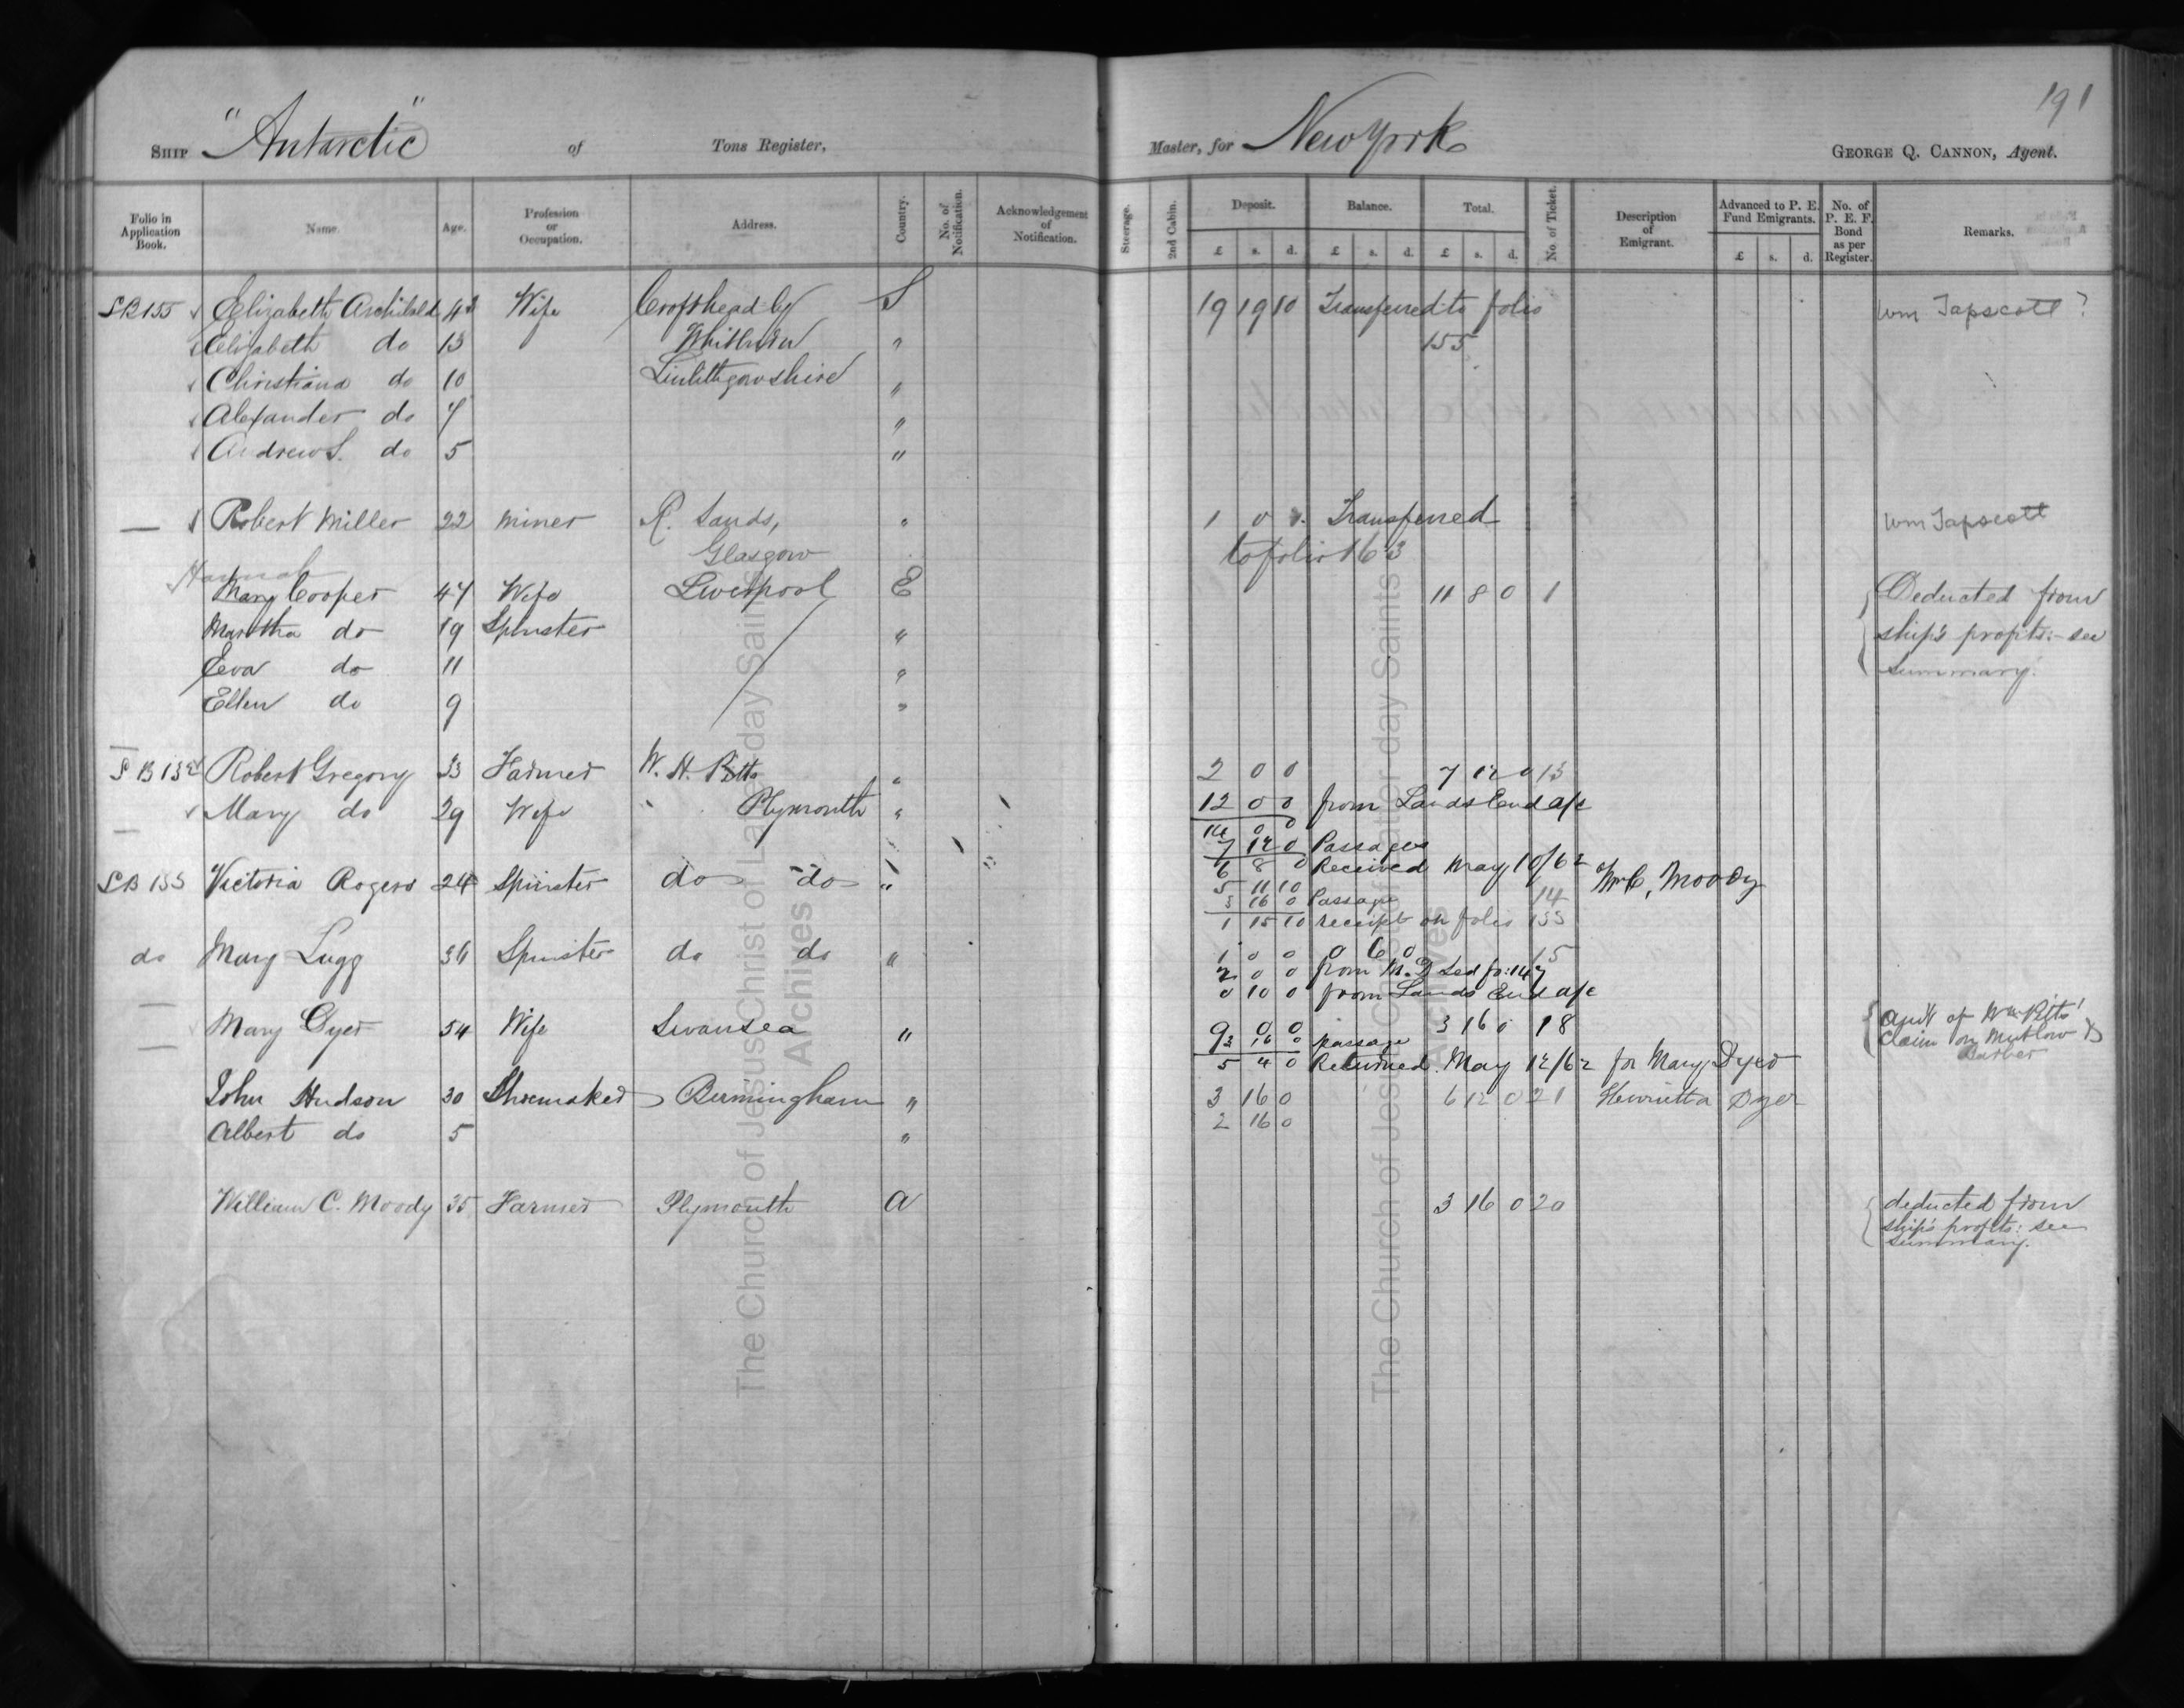 191
SHIP "Antarctic" of Tons Register, Master, for New York GEORGE Q. CANNON, Agent.
Folio in Application Book. Name. Age. Profession or Occupation. Address. Country. No. of Notification. Acknowledgement of Notification. Steerage. 2nd Cabin. Deposit. Balance. Total. No. of Ticket. Description of Emigrant. Advanced to P. E. Fund Emigrants. No. of P. E. F. Bond as per Register. Remarks.
£ s. d. £ s. d. £ s. d. £ s. d.
SB 155 Elizabeth Archibald 42 Wife Crofthead by S 19 19 10 Transferred to folio Wm Tapscott ?
Elizabeth do 13 Whitburn " 155
Christiana do 10 Linlithgowshire "
Alexander do 7 "
Andrew S. do 5 "
— Robert Miller 22 Miner R. Sands, " 1 0 0 Transferred Wm Tapscott
Glasgow to folio 163
Hannah
Mary Cooper 47 Wife Liverpool E 11 8 0 1 Deducted from
Martha do 19 Spinster " ship's profits:- see
Eva do 11 " summary.
Ellen do 9 "
SB 132 Robert Gregory 33 Farmer W. H. Pitts " 2 0 0 7 12 0 13
Mary do 29 Wife " Plymouth " 12 0 0 from Lands End a/c
14 0 0
7 12 0 Passages
6 8 0 Received May 10/62 Wm C. Moody
SB 155 Victoria Rogers 24 Spinster do do " 5 11 10
3 16 0 Passage 14
1 15 10 receipt on folio 155
do Mary Lugg 36 Spinster do do " 1 0 0 0 6 0 15
2 0 0 from M. D Led fo: 147
0 10 0 from Lands End a/c
— Mary Dyer 54 Wife Swansea " 9 0 0 3 16 0 18 apd of Wm Pitts'
3 16 0 passage claim on Mutlow &
5 4 0 Returned May 12/62 for Mary Dyer Barber
John Hudson 30 Shoemaker Birmingham " 3 16 0 6 12 0 21 Henrietta Dyer
Albert do 5 " 2 16 0
William C. Moody 35 Farmer Plymouth A 3 16 0 20 deducted from
ship's profits: see
summary.
The Church of Jesus Christ of Latter-day Saints
Archives
The Church of Jesus Christ of Latter-day Saints
Archives